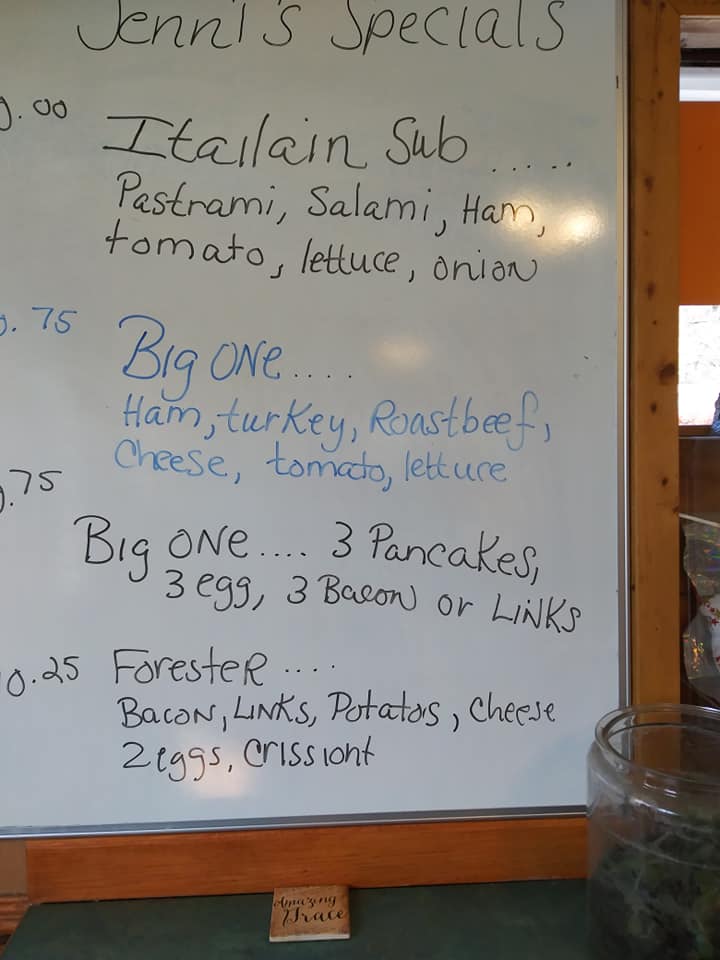 Jenni's Specials
0.00 Itailain Sub .....
Pastrami, Salami, Ham,
tomato, lettuce, onion
0.75 Big ONe....
Ham, turkey, Roastbeef,
Cheese, tomato, lettuce
.75
Big ONe.... 3 Pancakes,
3 egg, 3 Bacon or LiNKS
0.25 ForesteR ....
BacoN, LiNKS, Potatos, cheese
2 eggs, Crissiont
Amazing
Grace